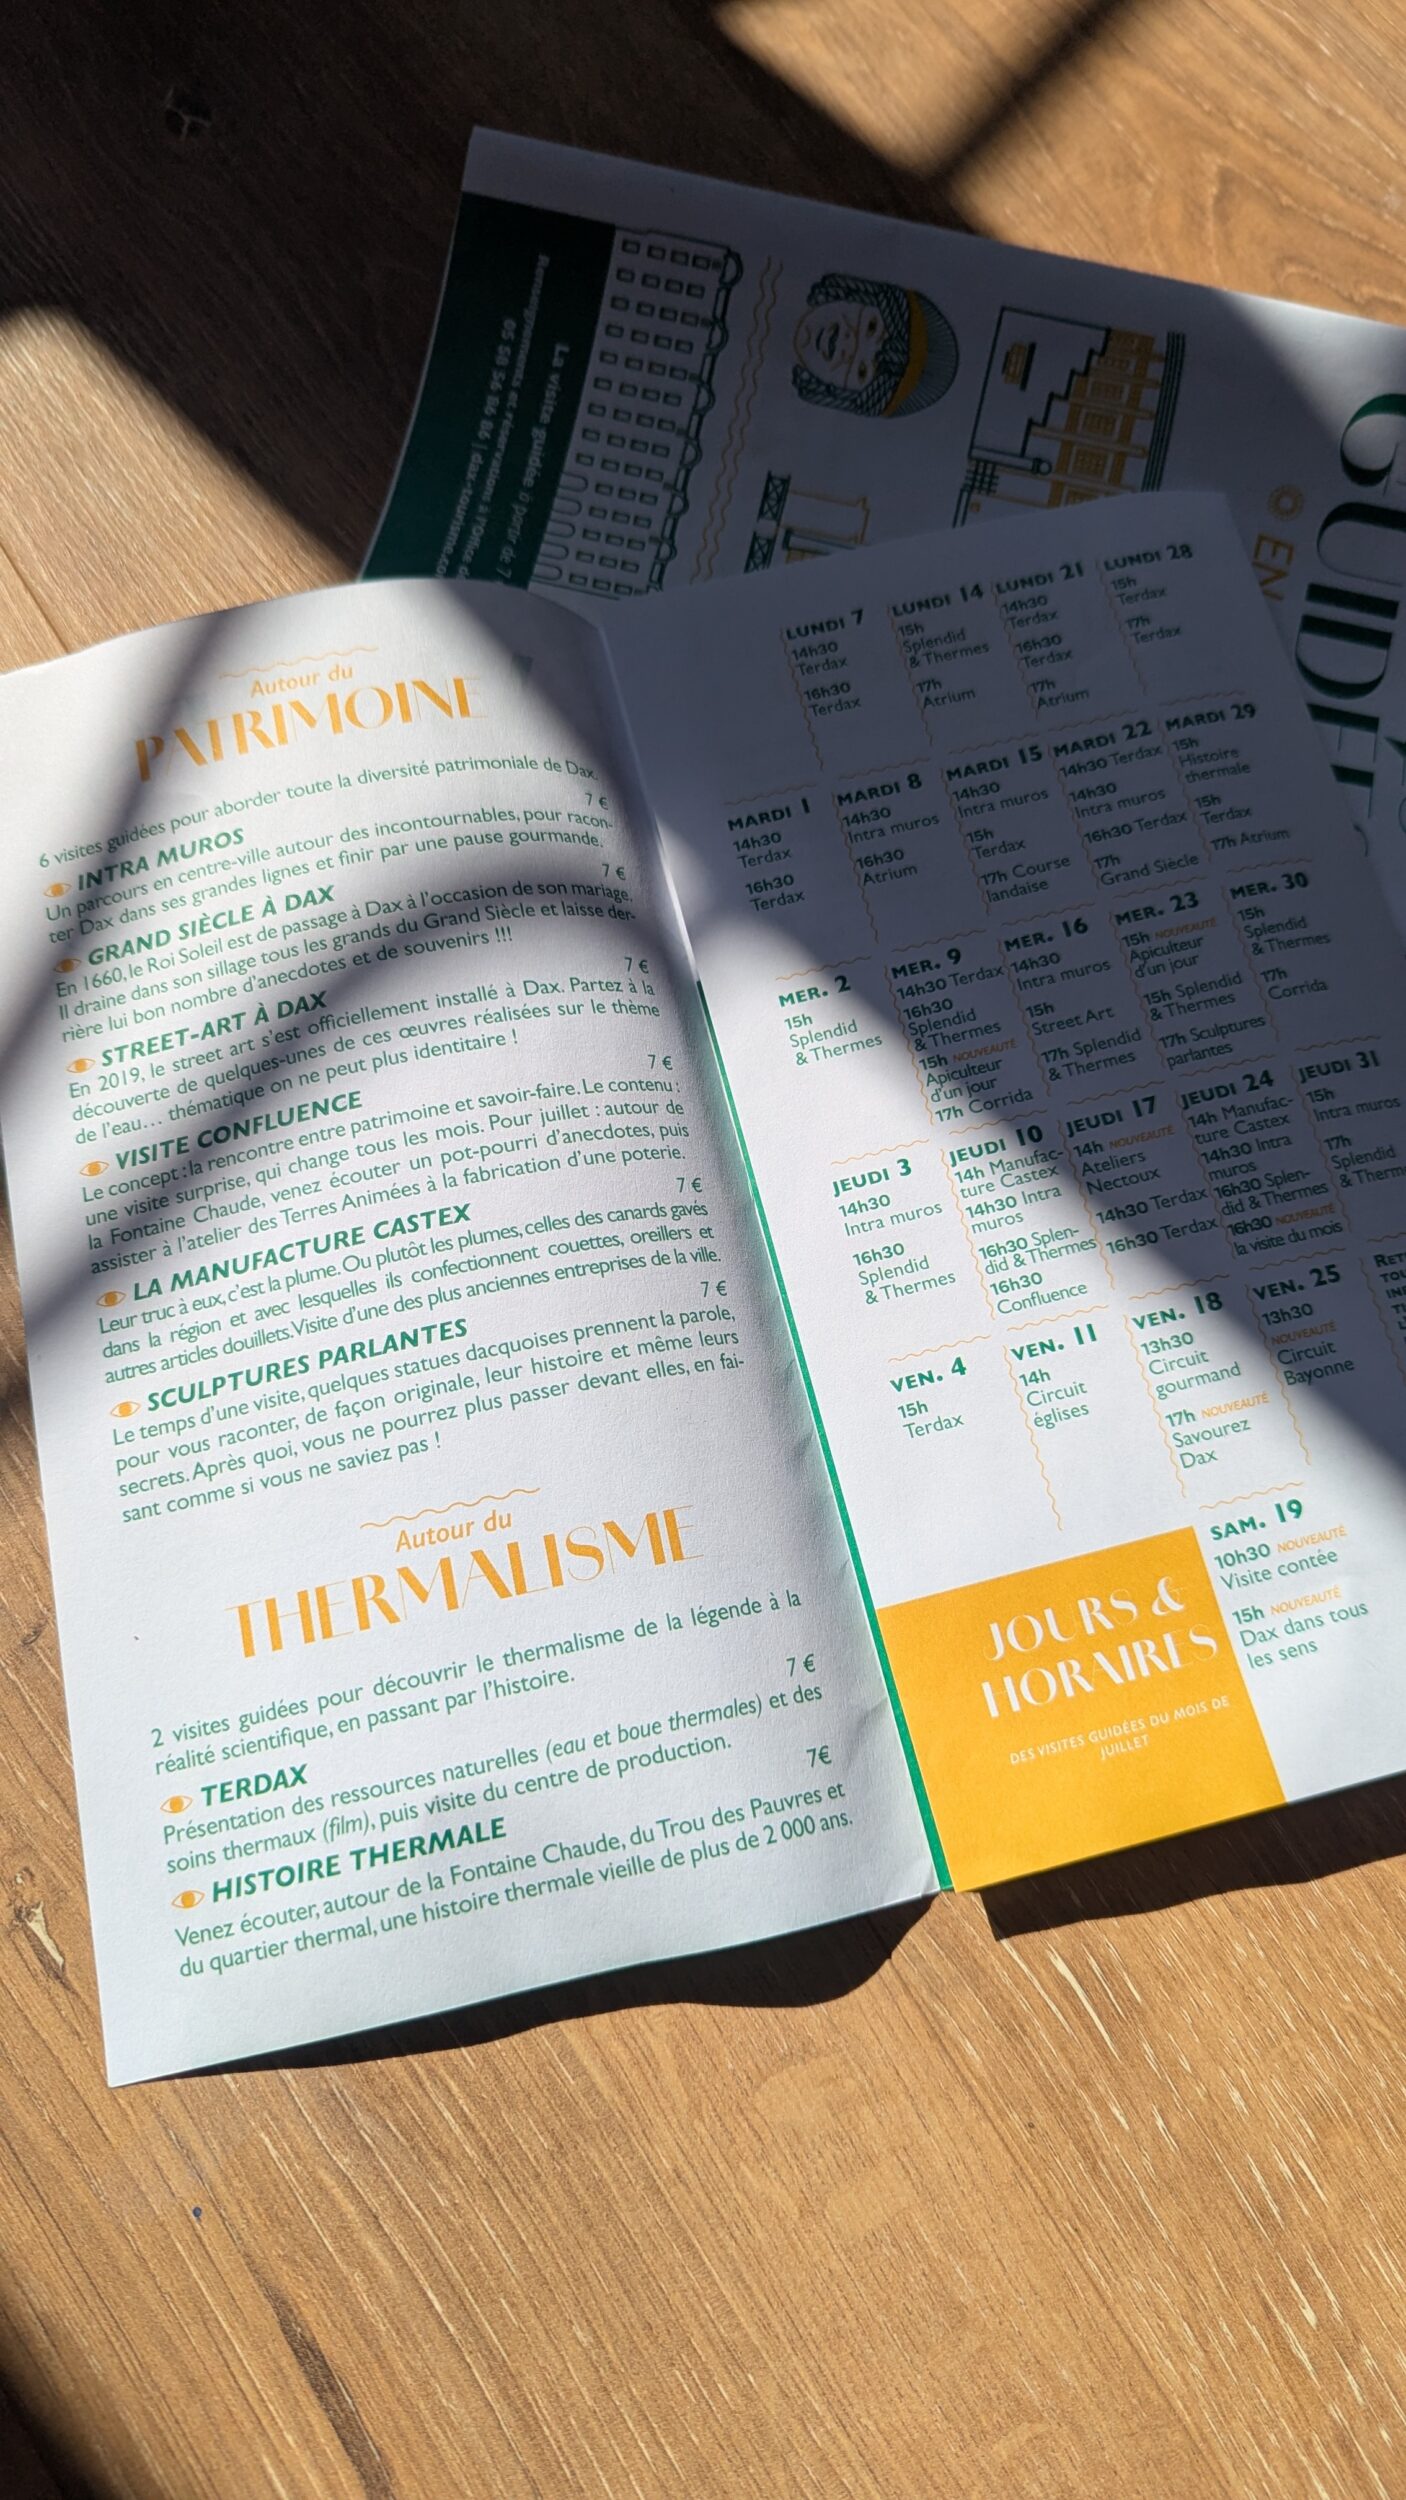 Autour du
PATRIMOINE
6 visites guidées pour aborder toute la diversité patrimoniale de Dax.
INTRA MUROS 7 €
Un parcours en centre-ville autour des incontournables, pour racon-
ter Dax dans ses grandes lignes et finir par une pause gourmande.
GRAND SIÈCLE À DAX 7 €
En 1660, le Roi Soleil est de passage à Dax à l'occasion de son mariage.
Il draine dans son sillage tous les grands du Grand Siècle et laisse der-
rière lui bon nombre d'anecdotes et de souvenirs !!!
STREET-ART À DAX 7 €
En 2019, le street art s'est officiellement installé à Dax. Partez à la
découverte de quelques-unes de ces œuvres réalisées sur le thème
de l'eau… thématique on ne peut plus identitaire !
VISITE CONFLUENCE 7 €
Le concept : la rencontre entre patrimoine et savoir-faire. Le contenu :
une visite surprise, qui change tous les mois. Pour juillet : autour de
la Fontaine Chaude, venez écouter un pot-pourri d'anecdotes, puis
assister à l'atelier des Terres Animées à la fabrication d'une poterie.
LA MANUFACTURE CASTEX 7 €
Leur truc à eux, c'est la plume. Ou plutôt les plumes, celles des canards gavés
dans la région et avec lesquelles ils confectionnent couettes, oreillers et
autres articles douillets. Visite d'une des plus anciennes entreprises de la ville.
SCULPTURES PARLANTES 7 €
Le temps d'une visite, quelques statues dacquoises prennent la parole,
pour vous raconter, de façon originale, leur histoire et même leurs
secrets. Après quoi, vous ne pourrez plus passer devant elles, en fai-
sant comme si vous ne saviez pas !
Autour du
THERMALISME
2 visites guidées pour découvrir le thermalisme de la légende à la
réalité scientifique, en passant par l'histoire.
TERDAX 7 €
Présentation des ressources naturelles (eau et boue thermales) et des
soins thermaux (film), puis visite du centre de production.
HISTOIRE THERMALE 7€
Venez écouter, autour de la Fontaine Chaude, du Trou des Pauvres et
du quartier thermal, une histoire thermale vieille de plus de 2 000 ans.
LUNDI 7
14h30
Terdax
16h30
Terdax
LUNDI 14
15h
Splendid
& Thermes
17h
Atrium
LUNDI 21
14h30
Terdax
16h30
Terdax
17h
Atrium
LUNDI 28
15h
Terdax
17h
Terdax
MARDI 1
14h30
Terdax
16h30
Terdax
MARDI 8
14h30
Intra muros
16h30
Atrium
MARDI 15
14h30
Intra muros
15h
Terdax
17h Course
landaise
MARDI 22
14h30 Terdax
14h30
Intra muros
16h30 Terdax
17h
Grand Siècle
MARDI 29
15h
Histoire
thermale
15h
Terdax
17h Atrium
MER. 2
15h
Splendid
& Thermes
MER. 9
14h30 Terdax
16h30
Splendid
& Thermes
15h NOUVEAUTÉ
Apiculteur
d'un jour
17h Corrida
MER. 16
14h30
Intra muros
15h
Street Art
17h Splendid
& Thermes
MER. 23
15h NOUVEAUTÉ
Apiculteur
d'un jour
15h Splendid
& Thermes
17h Sculptures
parlantes
MER. 30
15h
Splendid
& Thermes
17h
Corrida
JEUDI 3
14h30
Intra muros
16h30
Splendid
& Thermes
JEUDI 10
14h Manufac-
ture Castex
14h30 Intra
muros
16h30 Splen-
did & Thermes
16h30
Confluence
JEUDI 17
14h NOUVEAUTÉ
Ateliers
Nectoux
14h30 Terdax
16h30 Terdax
JEUDI 24
14h Manufac-
ture Castex
14h30 Intra
muros
16h30 Splen-
did & Thermes
16h30 NOUVEAUTÉ
la visite du mois
JEUDI 31
15h
Intra muros
17h
Splendid
& Therm
VEN. 4
15h
Terdax
VEN. 11
14h
Circuit
églises
VEN. 18
13h30
Circuit
gourmand
17h NOUVEAUTÉ
Savourez
Dax
VEN. 25
13h30
NOUVEAUTÉ
Circuit
Bayonne
SAM. 19
10h30 NOUVEAUTÉ
Visite contée
15h NOUVEAUTÉ
Dax dans tous
les sens
JOURS &
HORAIRES
DES VISITES GUIDÉES DU MOIS DE
JUILLET
La visite guidée à partir de 7
Renseignements et réservations à l'Office d
05 58 56 86 86 | dax-tourisme.co
EN